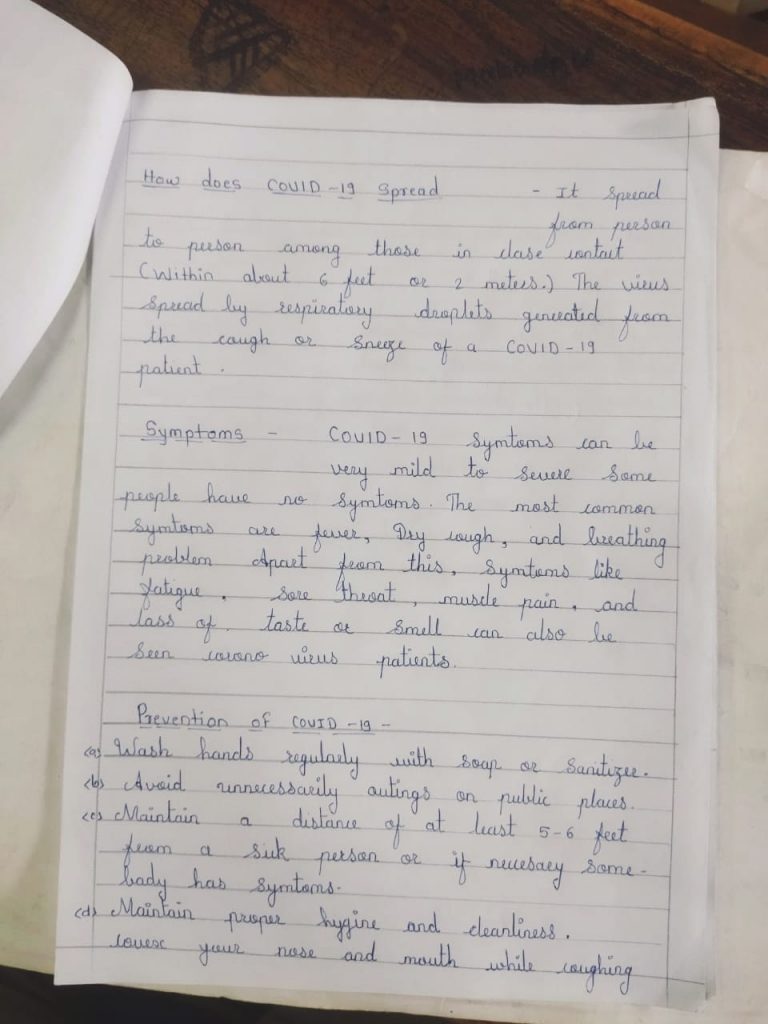 How does COVID-19 Spread - It Spread
from person
to person among those in close contact
(Within about 6 feet or 2 meters.) The virus
spread by respiratory droplets generated from
the cough or sneeze of a COVID-19
patient.
Symptoms - COVID-19 Symtoms can be
very mild to severe Some
people have no Symtoms. The most common
Symtoms are fever, Dry cough, and breathing
problem Apart from this, Symtoms like
fatigue, sore throat, muscle pain, and
loss of taste or smell can also be
seen corono virus patients.
Prevention of COVID-19-
(a) Wash hands regularly with soap or Sanitizer.
(b) Avoid unnecessarily outings on public places.
(c) Maintain a distance of at least 5-6 feet
from a sick person or if necesary some-
body has symtoms.
(d) Maintain proper hygine and cleanliness.
cover your nose and mouth while coughing